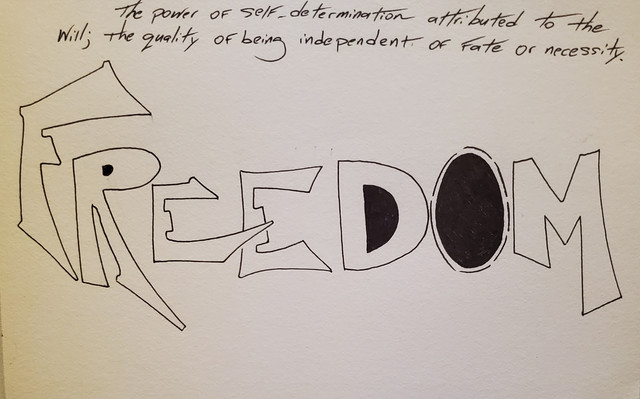 The power of self-determination attributed to the
Will; the quality of being independent of fate or necessity.
FREEDOM